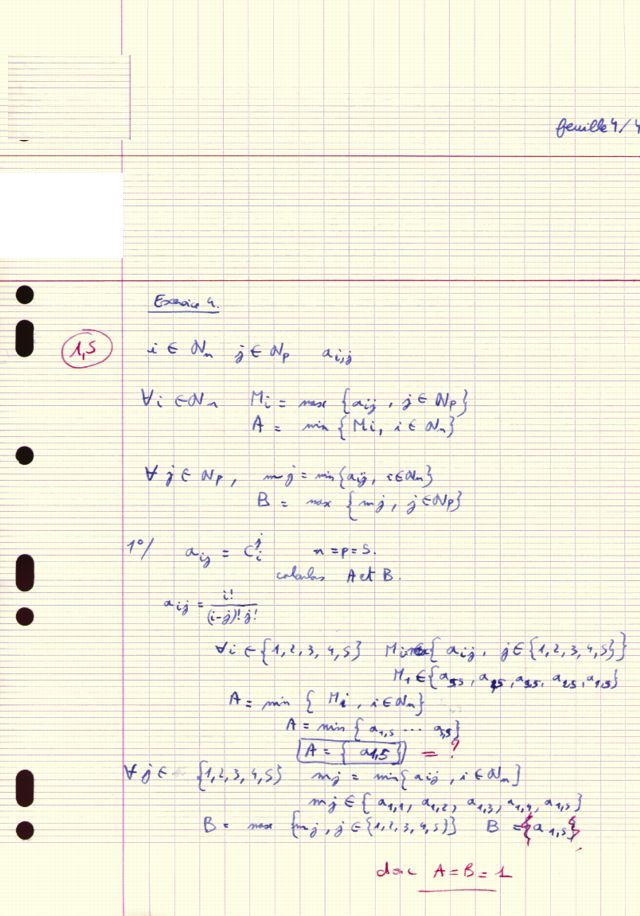 feuille 4/4
Exercice 4.
1,5
i ∈ ℕn j ∈ ℕp ai,j
∀i ∈ ℕn Mi = max {aij, j ∈ ℕp}
A = min {Mi, i ∈ ℕn}
∀j ∈ ℕp, mj = min{aij, i∈ℕn}
B = max {mj, j∈ℕp}
1°/ aij = C_i^j n=p=5.
calculer A et B.
aij = i!/(i-j)!j!
∀i ∈ {1,2,3,4,5} Mi {aij, j∈{1,2,3,4,5}}
M1 ∈ {a55, a45, a35, a25, a15}
A = min {Mi, i∈ℕn}
A = min {a1,5 ... a5,5}
A = {a1,5} = ?
∀j ∈ {1,2,3,4,5} mj = min{aij, i∈ℕn}
mj ∈ {a1,1, a1,2, a1,3, a1,4, a1,5}
B = max {mj, j∈{1,2,3,4,5}} B = {a1,5}
donc A=B=1